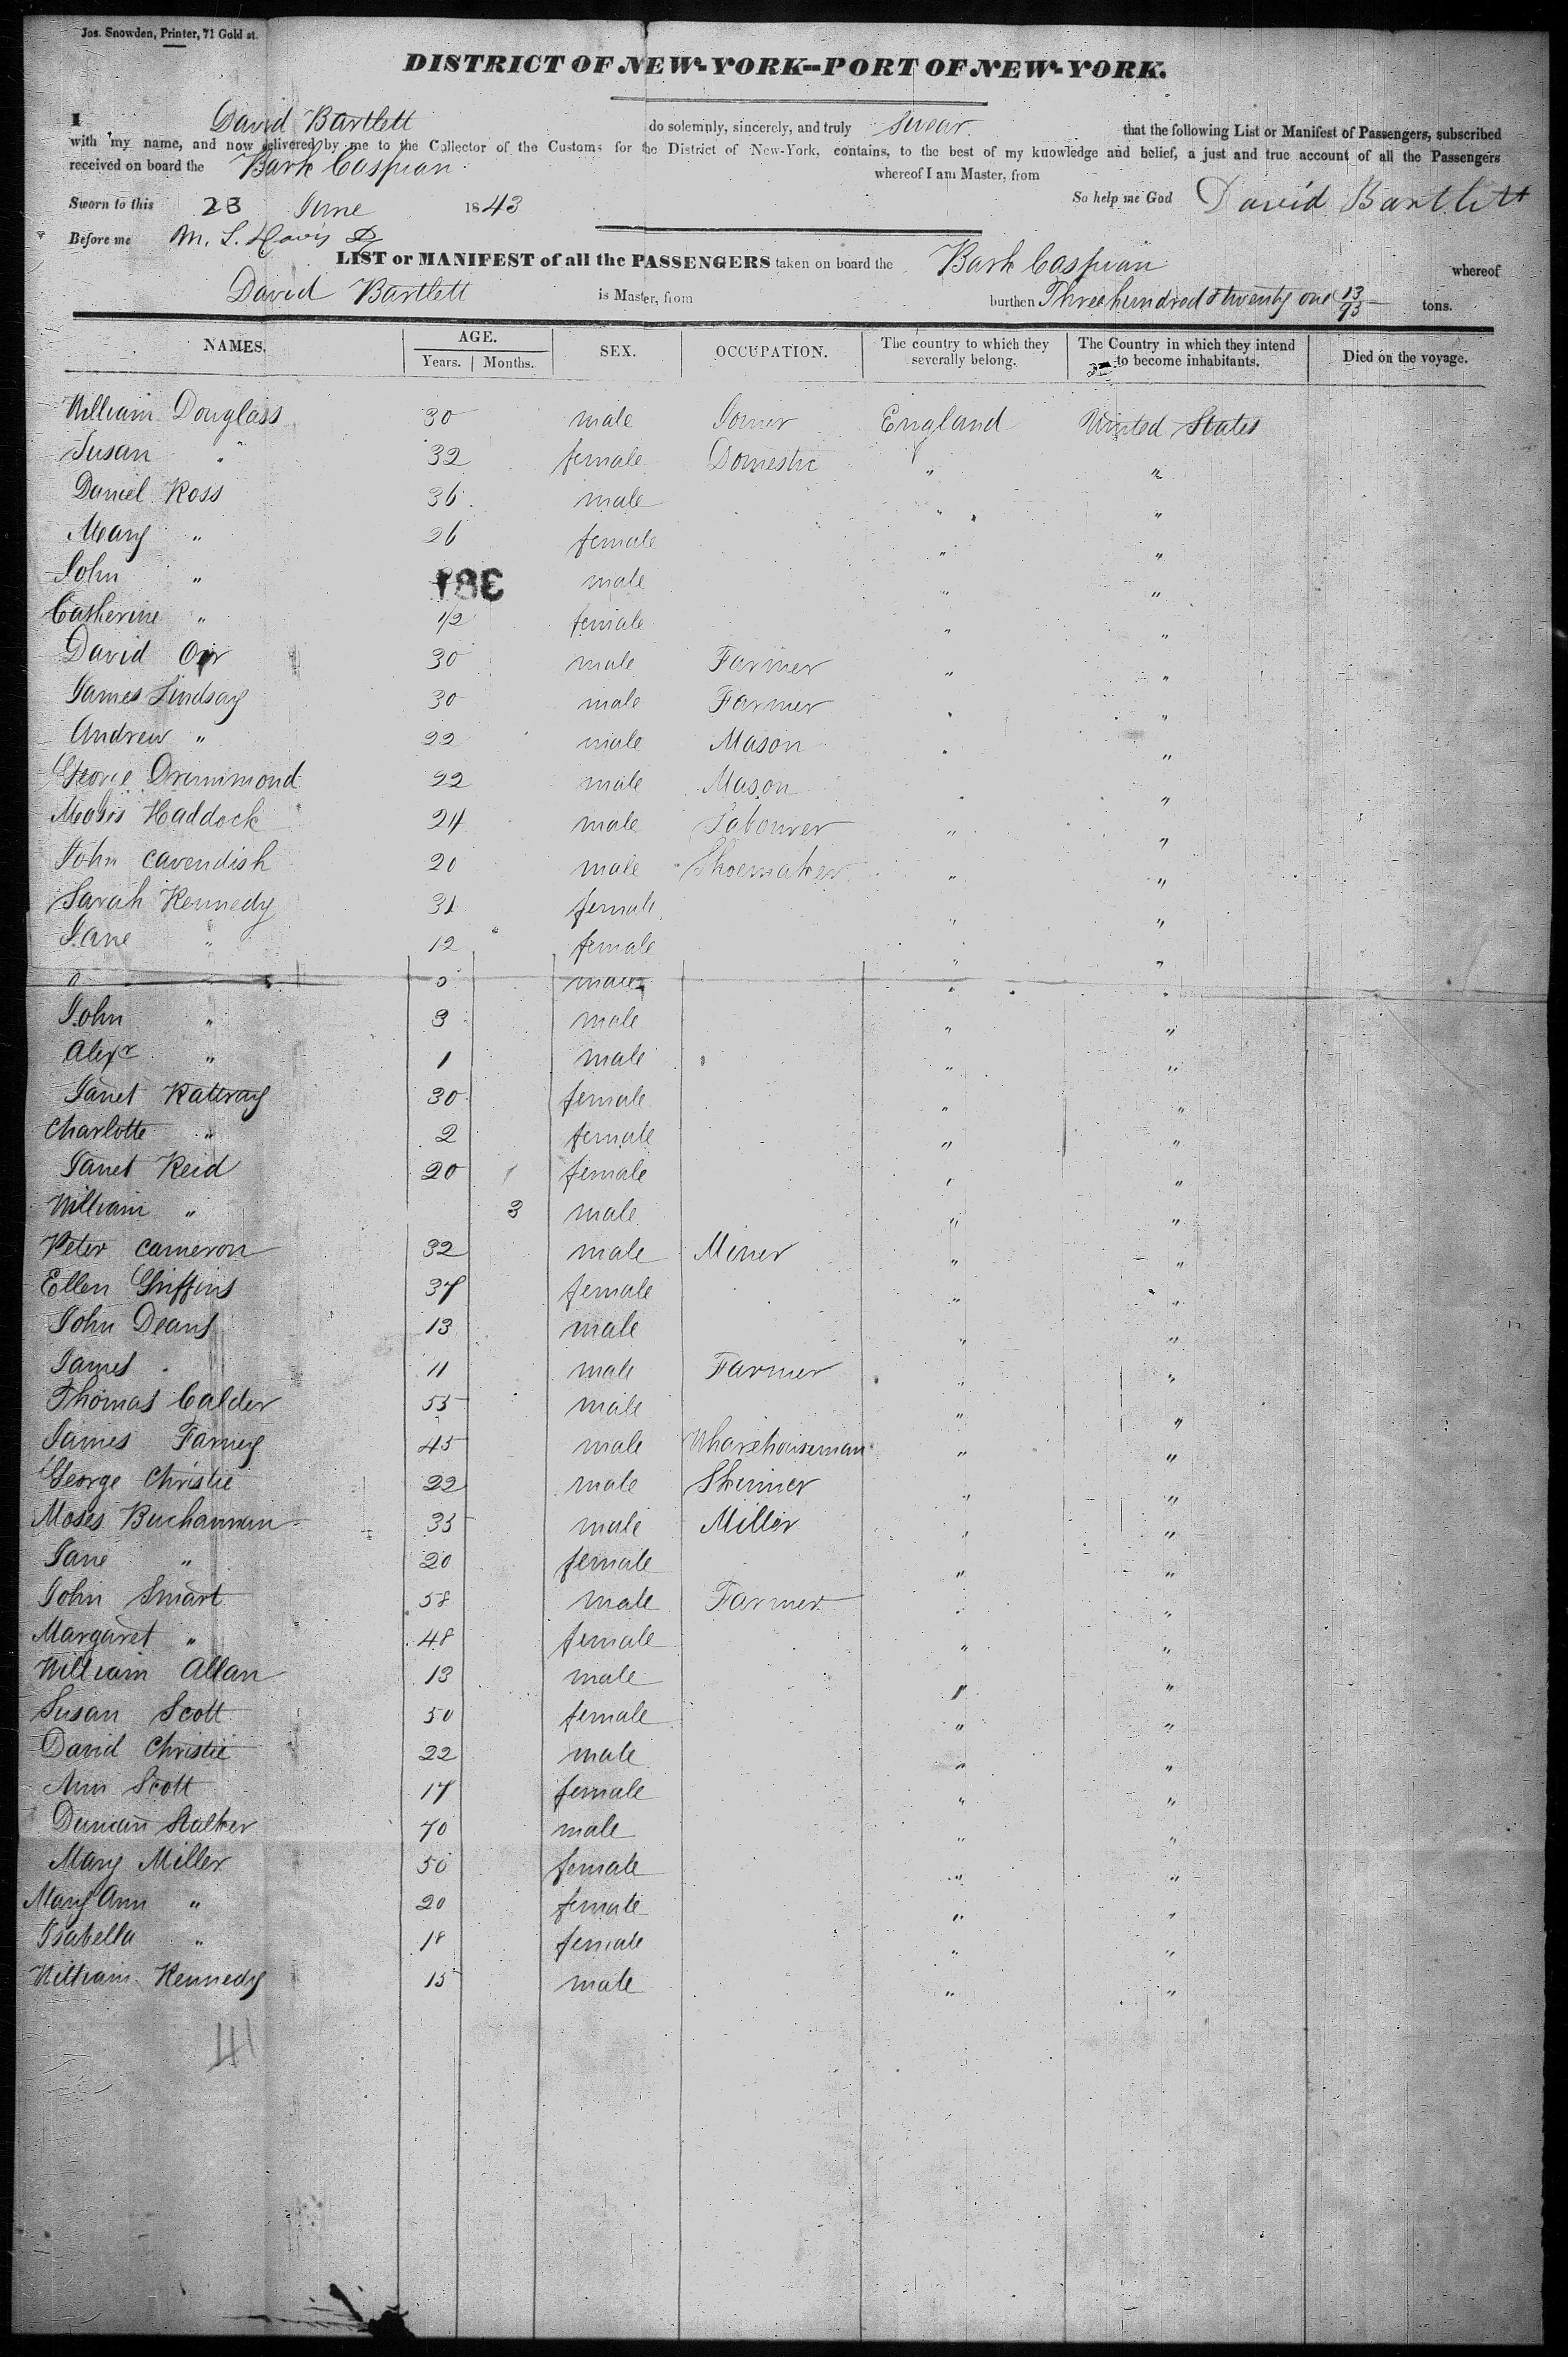 Jos. Snowden, Printer, 71 Gold st.
DISTRICT OF NEW-YORK--PORT OF NEW-YORK.
I David Bartlett do solemnly, sincerely, and truly swear that the following List or Manifest of Passengers, subscribed
with my name, and now delivered by me to the Collector of the Customs for the District of New-York, contains, to the best of my knowledge and belief, a just and true account of all the Passengers
received on board the Bark Caspian whereof I am Master, from
Sworn to this 23 June 1843 So help me God David Bartlett
Before me M. L. Davis
LIST or MANIFEST of all the PASSENGERS taken on board the Bark Caspian whereof
David Bartlett is Master, from burthen Three hundred & twenty one 13/95 tons.
NAMES. AGE. Years. Months. SEX. OCCUPATION. The country to which they severally belong. The Country in which they intend to become inhabitants. Died on the voyage.
William Douglass 30 male Joiner England United States
Susan " 32 female Domestic " "
Daniel Ross 36 male " "
Mary " 26 female " "
John " 381 male " "
Catherine " 1/2 female " "
David Orr 30 male Farmer " "
James Lindsay 30 male Farmer " "
Andrew " 22 male Mason " "
George Drummond 22 male Mason " "
Moses Haddock 24 male Labourer " "
John Cavendish 20 male Shoemaker " "
Sarah Kennedy 31 female " "
Jane " 12 female " "
male " "
John " 3 male " "
Alexr " 1 male " "
Janet Rattray 30 female " "
Charlotte " 2 female " "
Janet Reid 20 female " "
William " 3 male " "
Peter Cameron 32 male Miner " "
Ellen Griffins 37 female " "
John Deans 13 male " "
James " 11 male Farmer " "
Thomas Calder 55 male " "
James Farney 45 male Wharehouseman " "
George Christie 22 male Skinner " "
Moses Buchannan 35 male Miller " "
Jane " 20 female " "
John Smart 58 male Farmer " "
Margaret " 48 female " "
William Allan 13 male " "
Susan Scott 50 female " "
David Christie 22 male " "
Ann Scott 17 female " "
Duncan Stalker 70 male " "
Mary Miller 50 female " "
Mary Ann " 20 female " "
Isabella " 18 female " "
William Kennedy 15 male " "
41